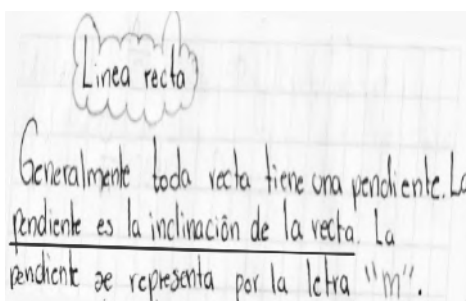 Linea recta
Generalmente toda recta tiene una pendiente. La
pendiente es la inclinación de la recta. La
pendiente se representa por la letra "m".